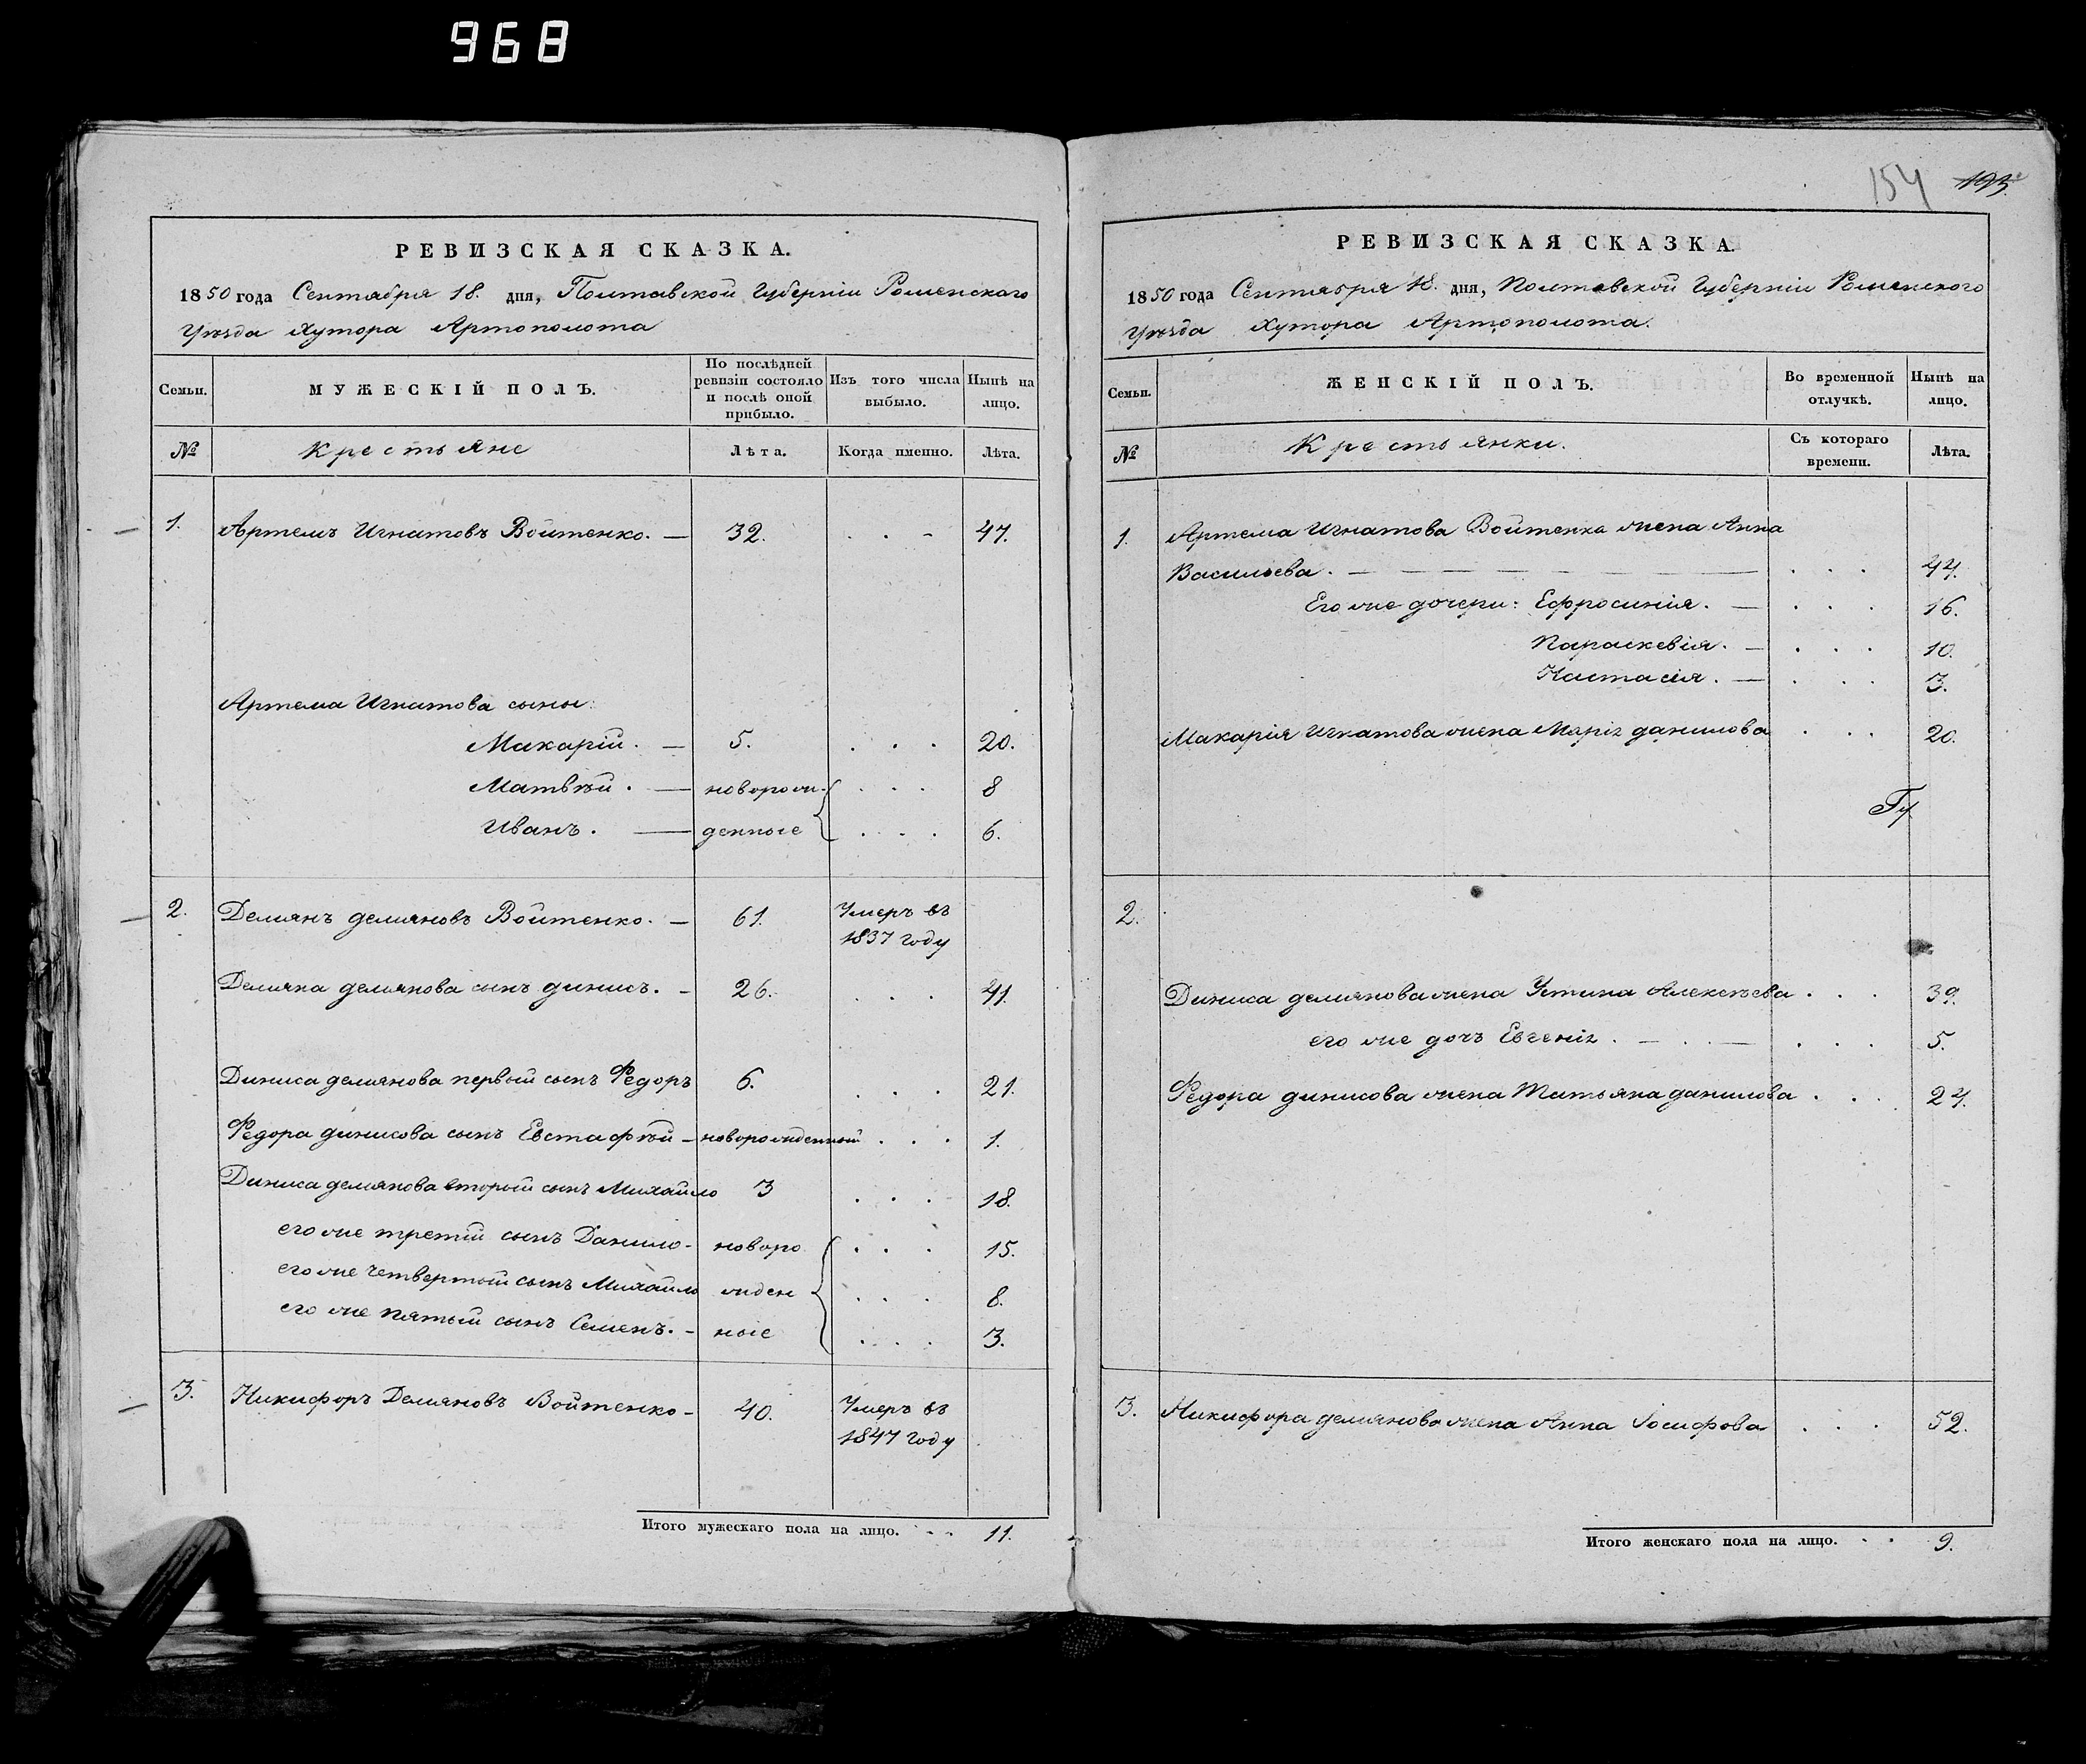 968
РЕВИЗСКАЯ СКАЗКА.
1850 года Сентября 18. дня, Полтавской Губерніи Роменскаго
Уѣзда Хутора Артополота
Семьи.
МУЖЕСКІЙ ПОЛЪ.
По послѣдней ревизіи состояло и послѣ оной прибыло.
Изъ того числа выбыло.
Нынѣ на лицо.
№ Крестьяне Лѣта. Когда именно. Лѣта.
1. Артемъ Игнатовъ Войтенко. — 32. . . - 47.
Артема Игнатова сыны:
Макарій. — 5. . . . 20.
Матвѣй. — новорож- . . . 8
Иванъ. — денные . . . 6.
2. Демянъ демяновъ Войтенко. — 61. Умеръ въ
1837 году
Демяна демянова сынъ динисъ. - 26. . . . 41.
Диниса демянова первый сынъ Федоръ 6. . . . 21.
Федора динисова сынъ Евстафѣй - новорожденный . . . 1.
Диниса демянова вторый сынъ Михайло 3 . . . 18.
его же третій сынъ Данило- новоро . . . 15.
его же четвертый сынъ Михайло жден . . . 8.
его же пятый сынъ Семенъ. - ные . . . 3.
3. Никифоръ Демяновъ Войтенко- 40. Умеръ въ
1847 году
Итого мужескаго пола на лицо. . . 11.
154 193.
РЕВИЗСКАЯ СКАЗКА.
1850 года Сентября 18. дня, Полтавской Губерніи Роменского
Уѣзда Хутора Артополота.
Семьи.
ЖЕНСКІЙ ПОЛЪ.
Во временной отлучкѣ.
Нынѣ на лицо.
№ Крестьянки. Съ котораго времени. Лѣта.
1. Артема Игнатова Войтенка жена Анна
Васильева. — . . . 44.
Его же дочери: Ефросинія. — . . . 16.
Параскевія. — . . . 10.
Настасія. — . . . 3.
Макарія Игнатова жена Марія данилова . . . 20.
2.
Диниса демянова жена Устина Алексѣева . . . 39.
его же дочъ Евгенія. — . — . . . 5.
Федора динисова жена Татьяна данилова . . . 24.
3. Никифора демянова жена Анна Іосифова . . . 52.
Итого женскаго пола на лицо. . . 9.